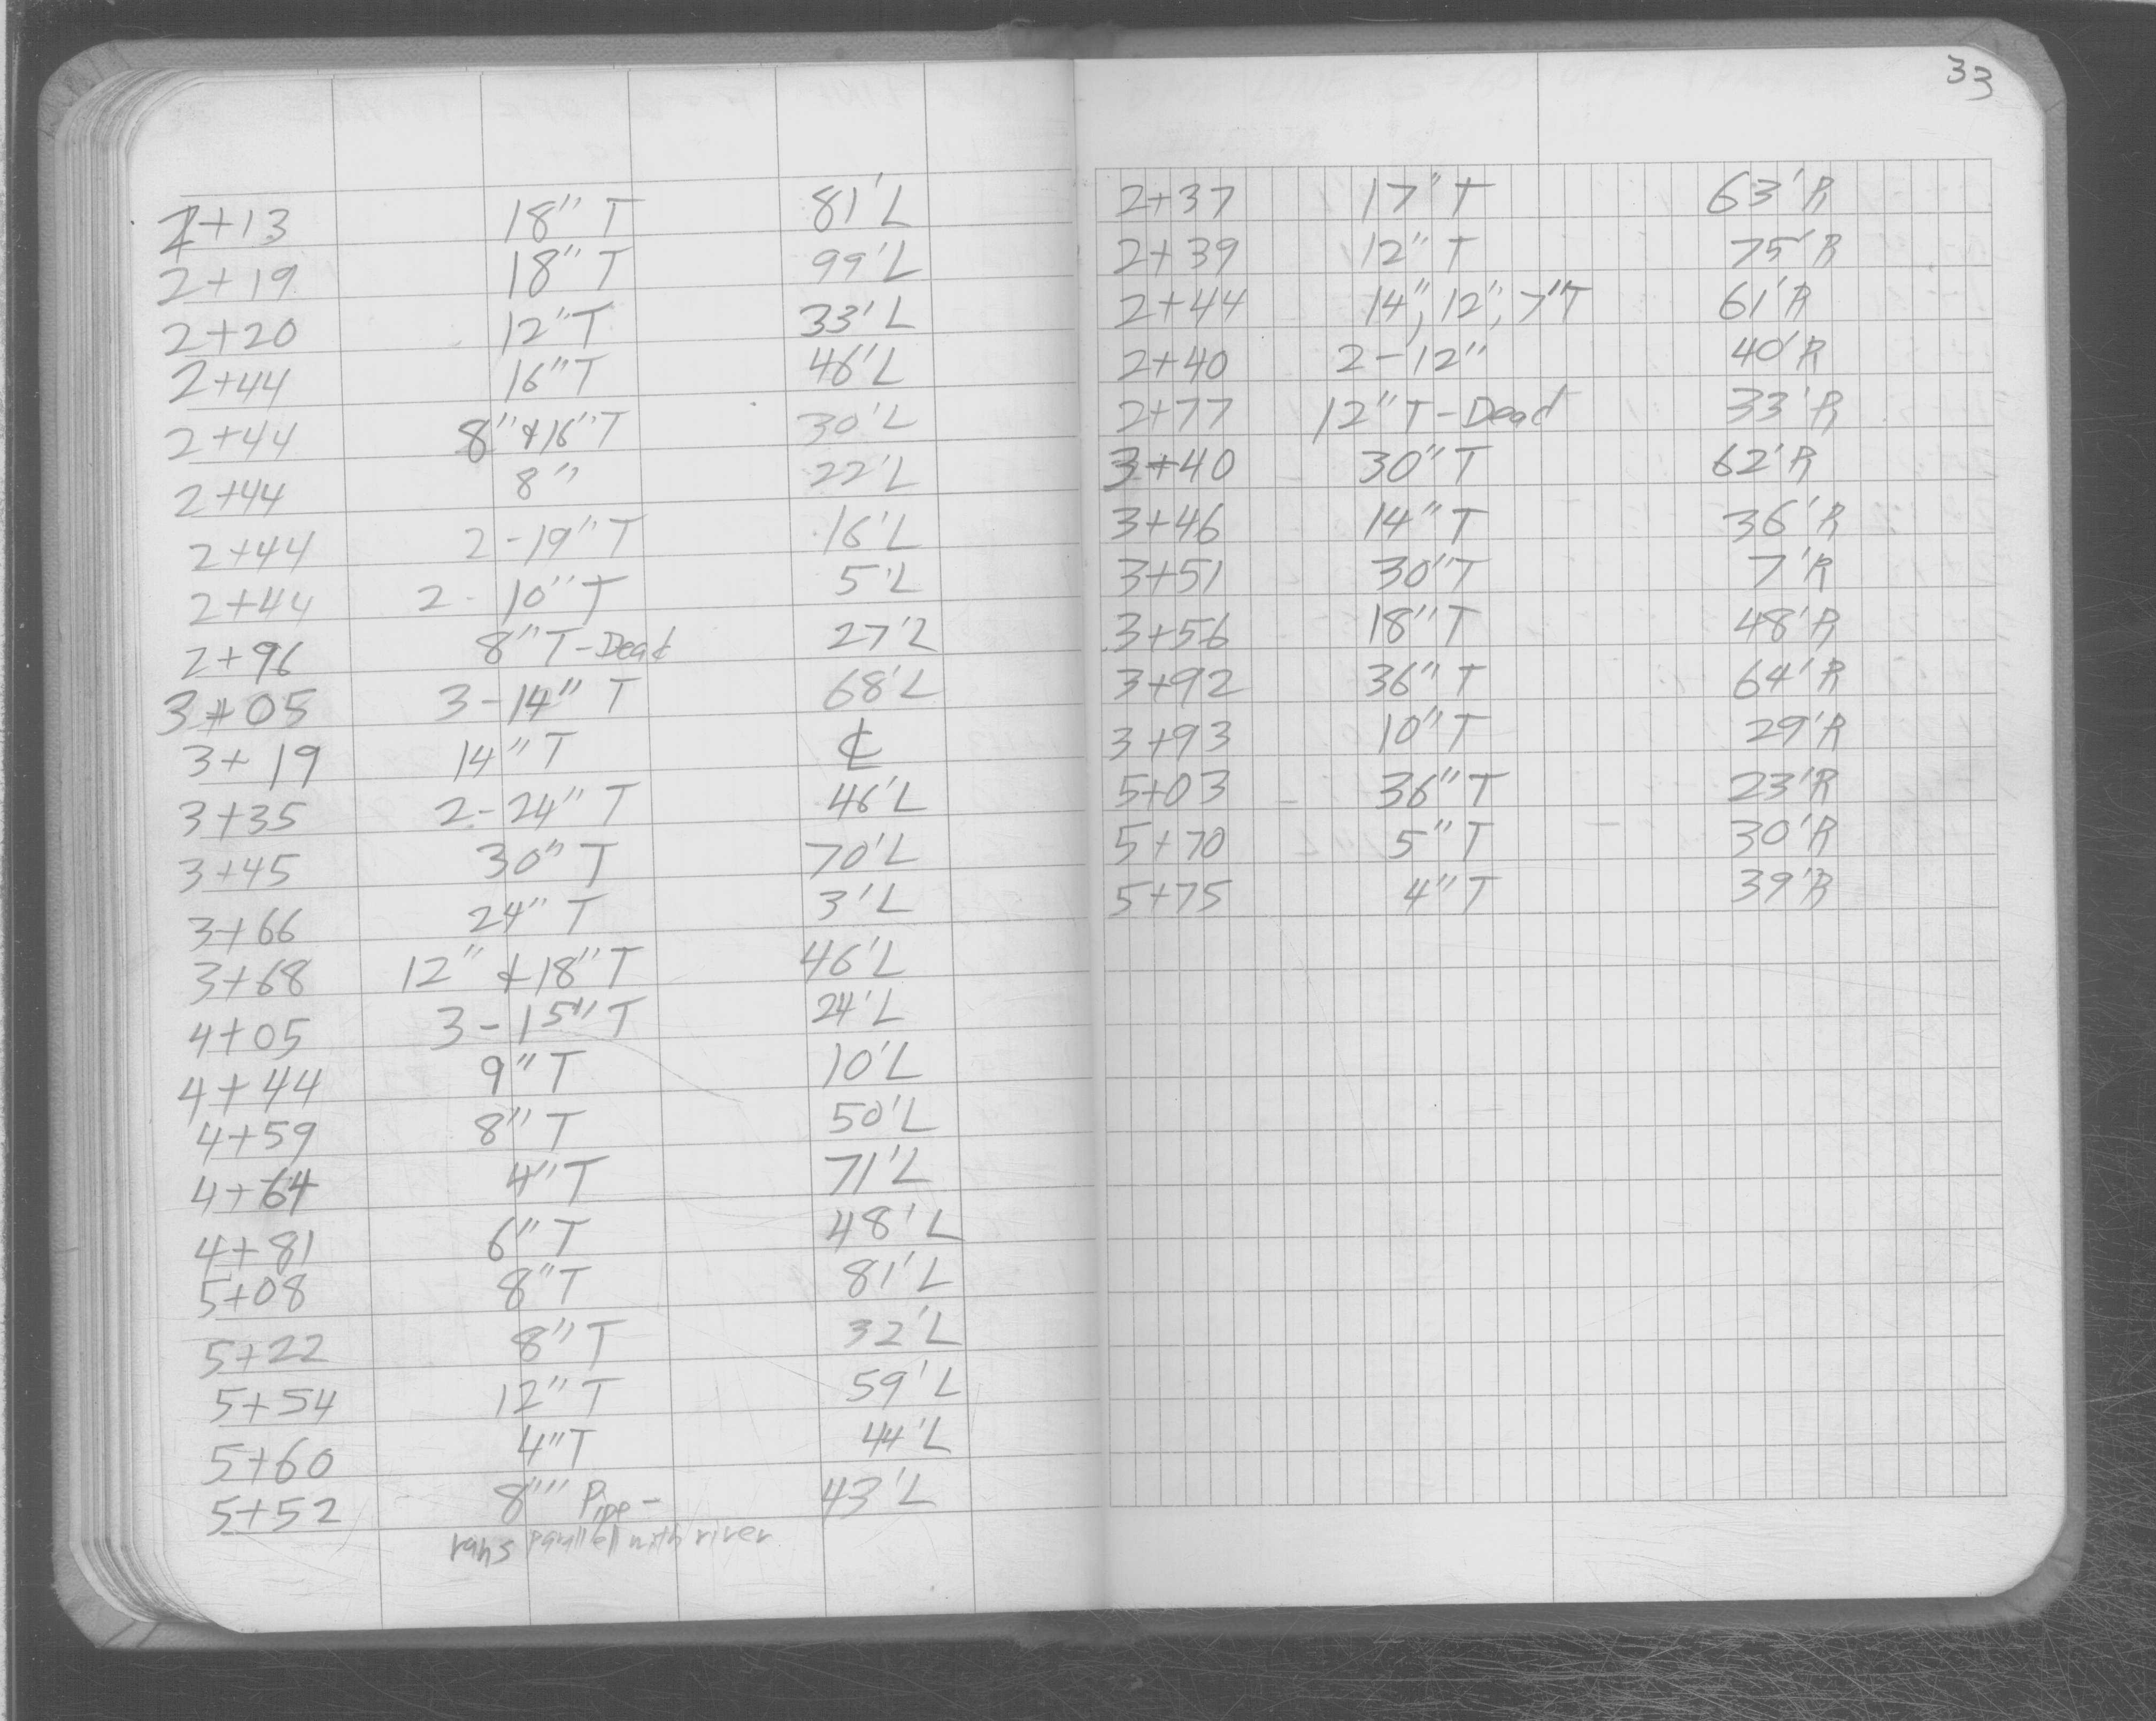 33
2+13 18" T 81'L
2+19 18" T 99'L
2+20 12" T 33'L
2+44 16" T 46'L
2+44 8" & 16" T 30'L
2+44 8" 22'L
2+44 2-19" T 16'L
2+44 2-10" T 5'L
2+96 8" T-Dead 27'L
3+05 3-14" T 68'L
3+19 14" T ℄
3+35 2-24" T 46'L
3+45 30" T 70'L
3+66 24" T 3'L
3+68 12" & 18" T 46'L
4+05 3-15" T 24'L
4+44 9" T 10'L
4+59 8" T 50'L
4+64 4" T 71'L
4+81 6" T 48'L
5+08 8" T 81'L
5+22 8" T 32'L
5+54 12" T 59'L
5+60 4" T 44'L
5+52 8"" Pipe- 43'L
runs parallell with river
2+37 17" T 63'R
2+39 12" T 75'R
2+44 14", 12", 7" T 61'R
2+40 2-12" 40'R
2+77 12" T-Dead 33'R
3+40 30" T 62'R
3+46 14" T 36'R
3+51 30" T 7'R
3+56 18" T 48'R
3+92 36" T 64'R
3+93 10" T 29'R
5+03 36" T 23'R
5+70 5" T 30'R
5+75 4" T 39'R